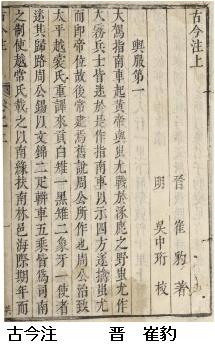 古今注上
晉 崔豹 著
明 吳中珩 校
輿服第一
大駕指南車起黃帝與蚩尤戰於涿鹿之野蚩尤作
大霧兵士皆迷於是作指南車以示四方遂擒蚩尤
而即帝位故後常建焉舊說周公所作也周公治致
太平越裳氏重譯來貢白雉一黑雉二象牙一使者
迷其歸路周公錫以文錦二疋軿車五乘皆爲司南
之制使越裳氏載之以南緣扶南林邑海際期年而
古今注 晋 崔豹